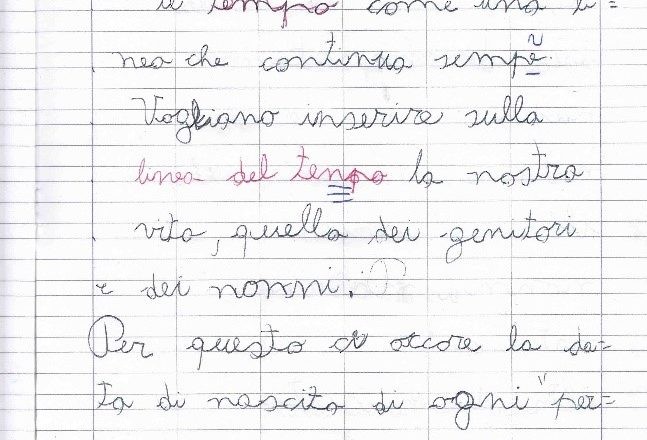 il tempo come una li=
nea che continua sempre.
Vogliano inserire sulla
linea del tenpo la nostra
vita, quella dei genitori
e dei nonni.
Per questo ci occore la da=
ta di nascita di ogni per=